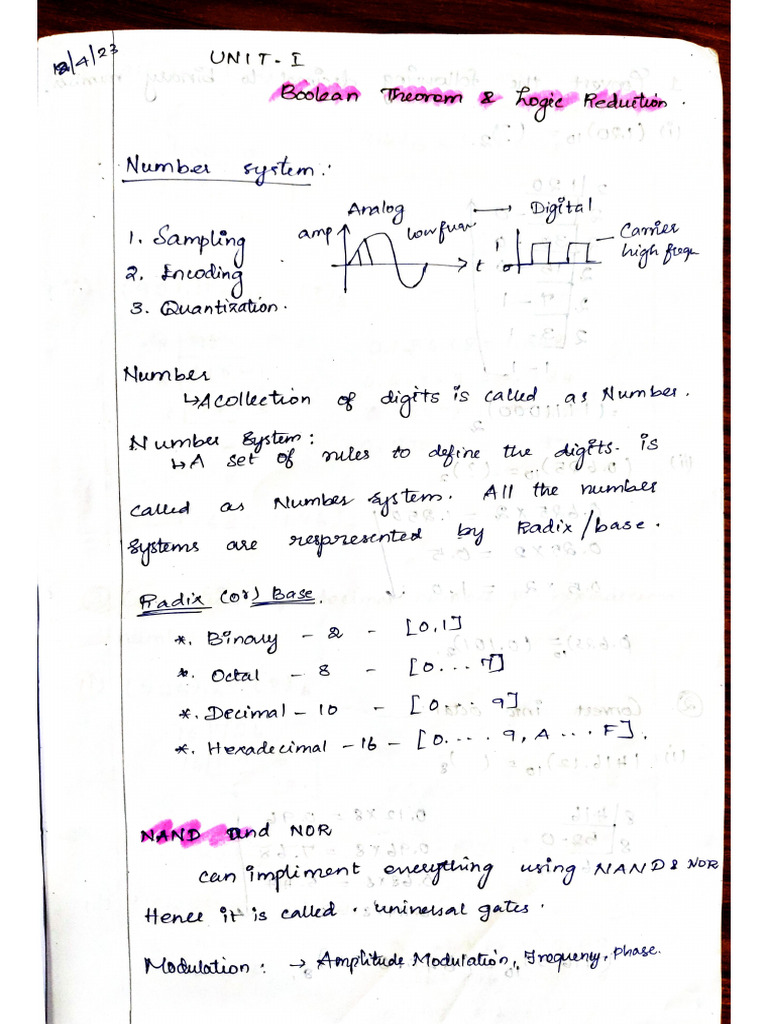 12/4/23
UNIT-I
Boolean Theorom & Logic Reduction.
Number system:
Analog → Digital
1. Sampling
amp
low freq
t
1
0
Carrier
high freq
2. Encoding
3. Quantization.
Number
↳ A collection of digits is called as Number.
Number System:
↳ A set of rules to define the digits. is
called as Number system. All the number
systems are respresented by Radix/base.
Radix (or) Base.
*. Binary - 2 - [0,1]
*. Octal - 8 - [0...7]
*. Decimal - 10 - [0... 9]
*. Hexadecimal - 16 - [0....9, A...F].
NAND and NOR
can impliment everything using NAND & NOR
Hence it is called. universal gates.
Modulation: → Amplitude Modulation, Frequency, phase.